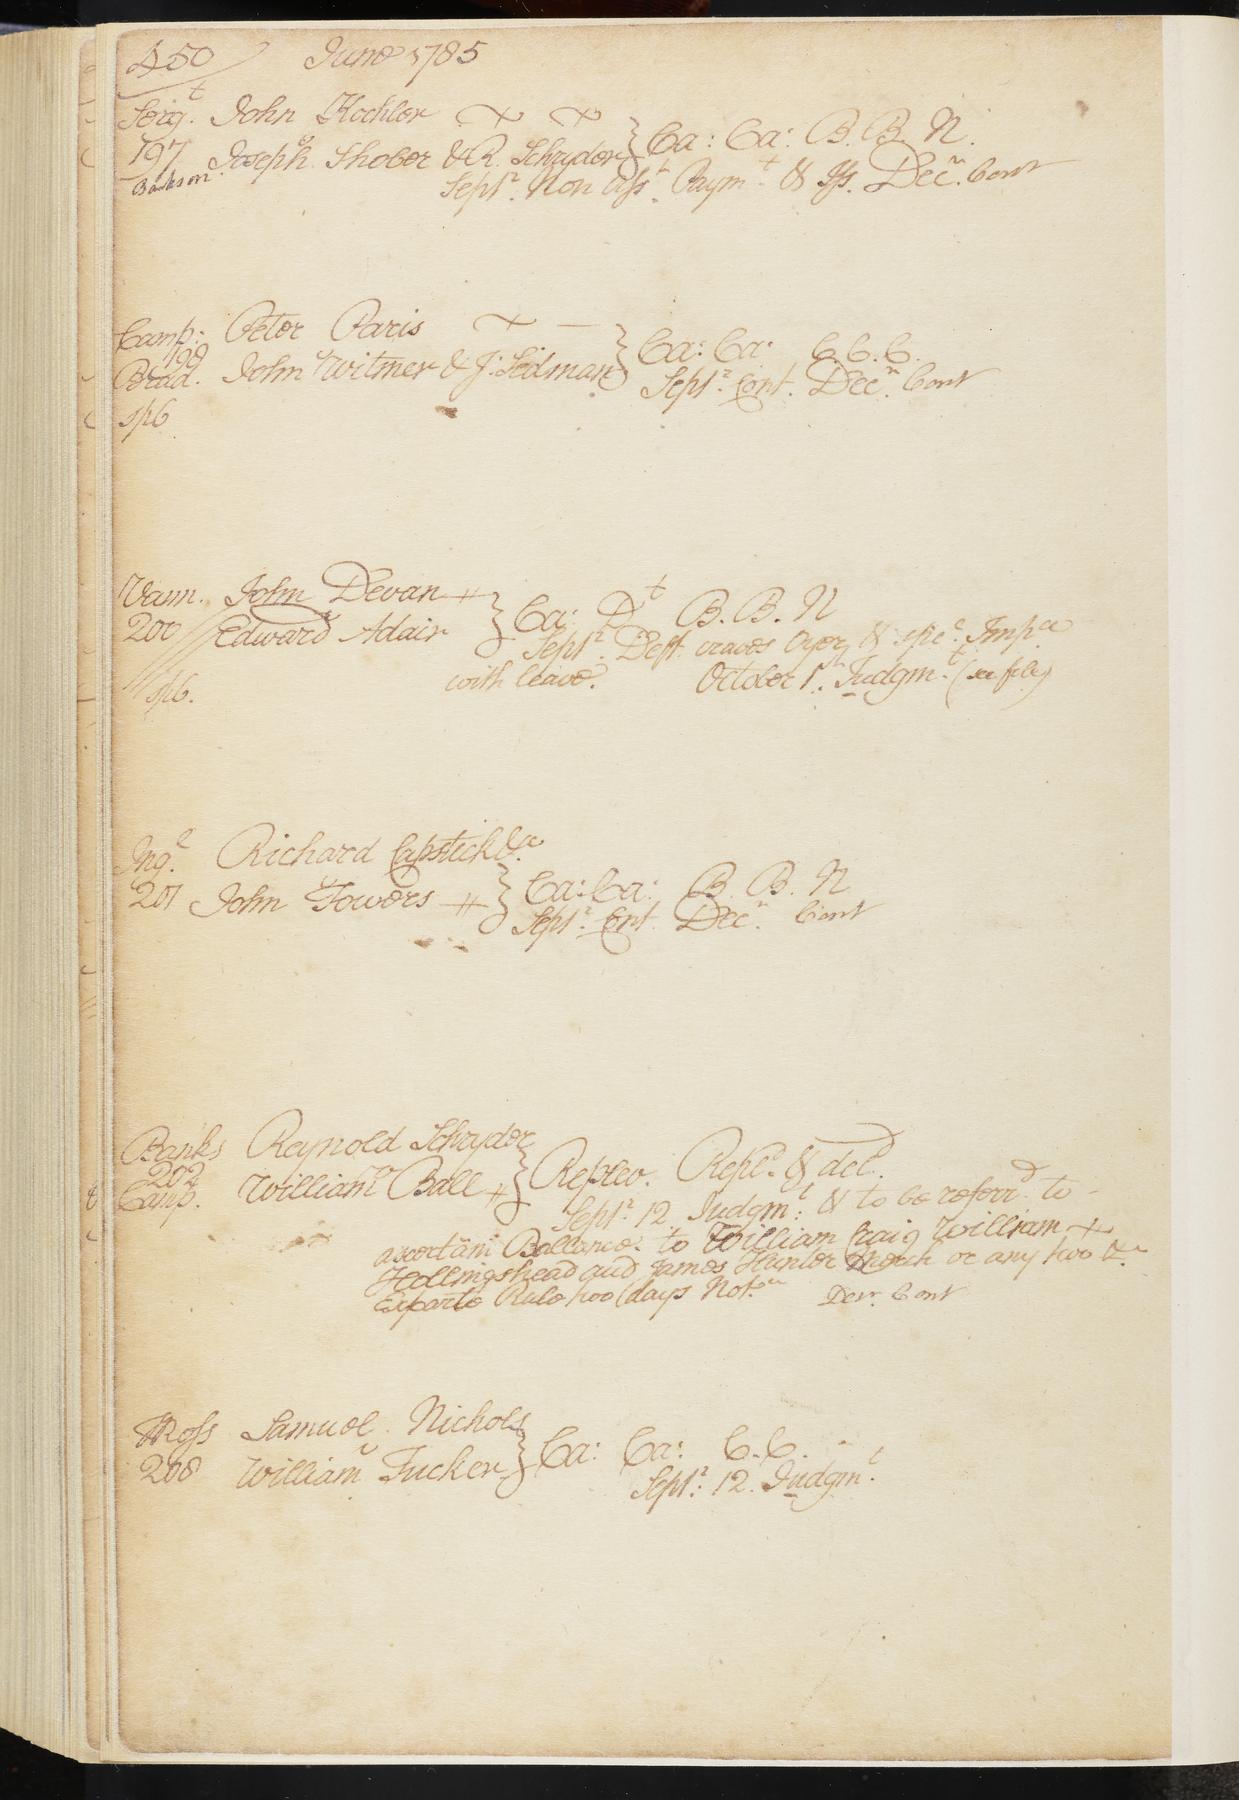 450 June 1785
Serg.t John Kochler
197 Joseph Shober & R. Schryder } Ca: Ca: B. B. N.
Bankson Sept.r Non Ass.t Paym.t & Iss. Dec.r Cont
Camp: Peter Paris
199
Brad. John Witmer & J: Sedman } Ca: Ca: C.C.C.
Sept.r Cont. Dec.r Cont
sp6
Vann. John Devan
200 Edward Adair } Ca: D.t B. B. N
Sept.r Deft. craves Oyer & spec. Imp.ce
with leave. October 1. Judgm.t (see file)
sp6.
Ing.l Richard Capstick &c.
201 John Towers } Ca: Ca: B. B. N
Sept.r Cont. Dec.r Cont
Banks Reynold Schryder
202 William Ball } Replev. Repl.d & del.d
Camp. Sept.r 12. Judgm.t & to be referr.d to
ascertain Ballance. to William Craig William
Hollingshead and James Hunter Merch or any two &c.
Exparte Rule two days Not.ce Decr. Cont
Ross Samuel Nichols
208 William Tucker } Ca: Ca: C.C.
Sept.r 12. Judgm.t